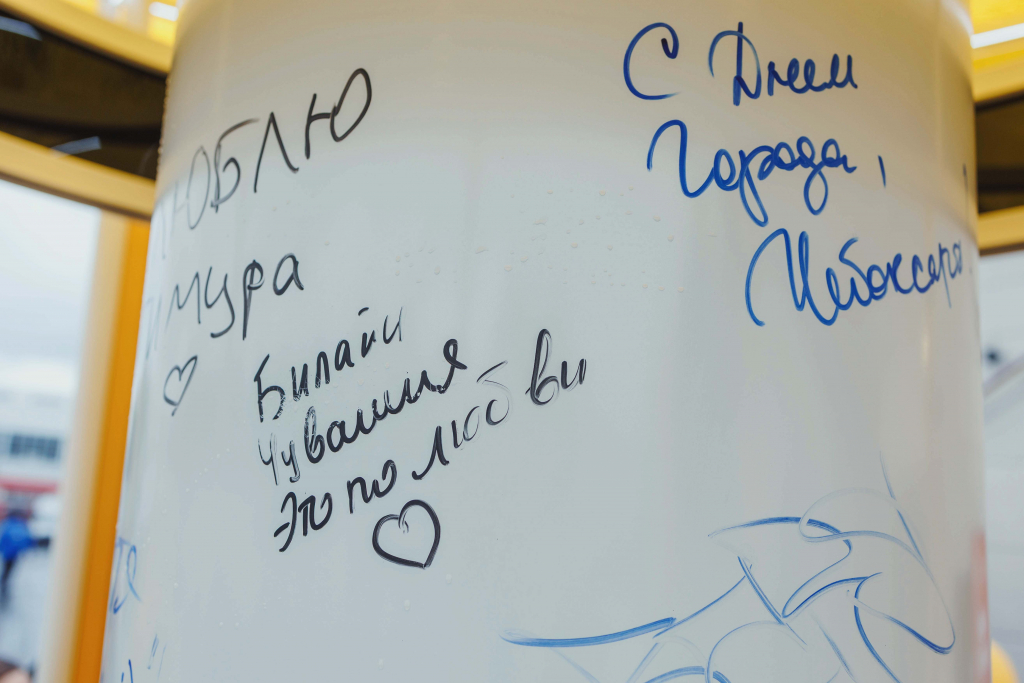 ЮБЛЮ
мура
Билайн
Чувашия
это по любви
С Днем
Города,
Чебоксары